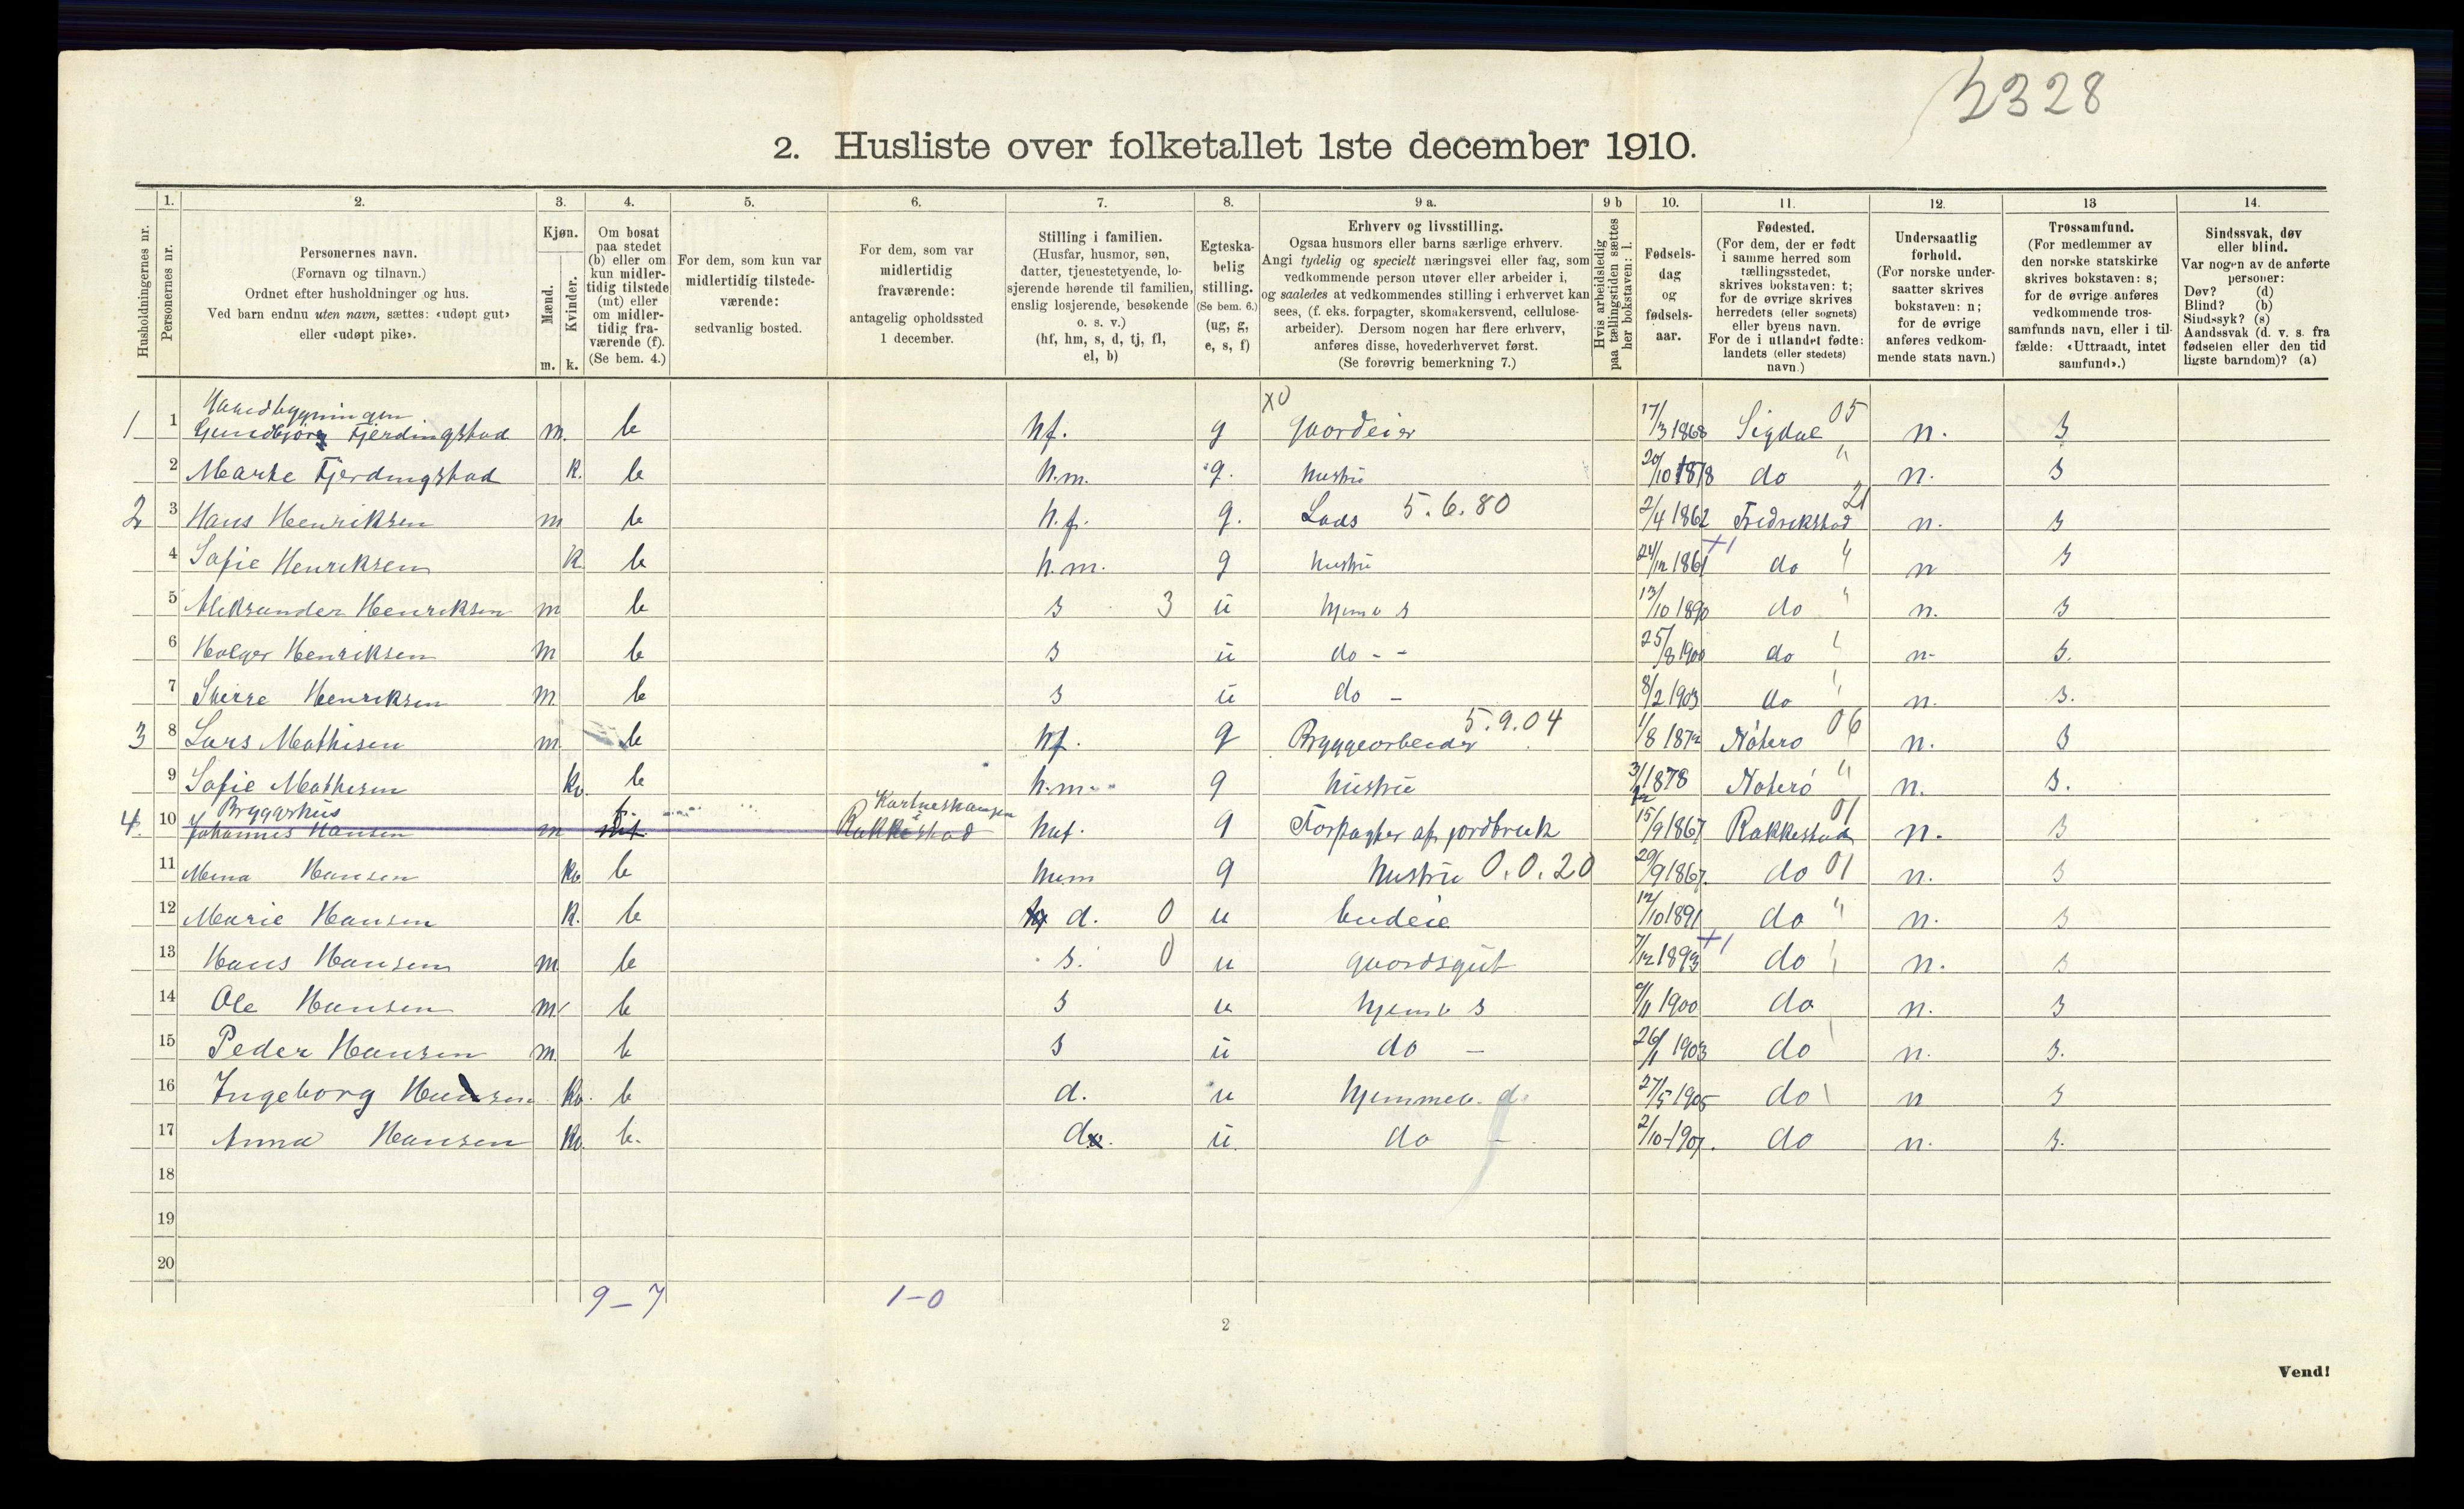 2328
2. Husliste over folketallet 1ste december 1910.
Husholdningernes nr.
1. Personernes nr.
2.
Personernes navn.
(Fornavn og tilnavn.)
Ordnet efter husholdninger og hus.
Ved barn endnu uten navn, sættes: «udøpt gut»
eller «udøpt pike».
3.
Kjøn.
Mænd.
Kvinder.
m. k.
4.
Om bosat
paa stedet
(b) eller om
kun midler-
tidig tilstede
(mt) eller
om midler-
tidig fra-
værende (f).
(Se bem. 4.)
5.
For dem, som kun var
midlertidig tilstede-
værende:
sedvanlig bosted.
6.
For dem, som var
midlertidig
fraværende:
antagelig opholdssted
1 december.
7.
Stilling i familien.
(Husfar, husmor, søn,
datter, tjenestetyende, lo-
sjerende hørende til familien,
enslig losjerende, besøkende
o. s. v.)
(hf, hm, s, d, tj, fl,
el, b)
8.
Egteska-
belig
stilling.
(Se bem. 6.)
(ug, g,
e, s, f)
9 a.
Erhverv og livsstilling.
Ogsaa husmors eller barns særlige erhverv.
Angi tydelig og specielt næringsvei eller fag, som
vedkommende person utøver eller arbeider i,
og saaledes at vedkommendes stilling i erhvervet kan
sees, (f. eks. forpagter, skomakersvend, cellulose-
arbeider). Dersom nogen har flere erhverv,
anføres disse, hovederhvervet først.
(Se forøvrig bemerkning 7.)
9 b
Hvis arbeidsledig
paa tællingstiden sættes
her bokstaven: l.
10.
Fødsels-
dag
og
fødsels-
aar.
11.
Fødested.
(For dem, der er født
i samme herred som
tællingsstedet,
skrives bokstaven: t;
for de øvrige skrives
herredets (eller sognets)
eller byens navn.
For de i utlandet fødte:
landets (eller stedets)
navn.)
12.
Undersaatlig
forhold.
(For norske under-
saatter skrives
bokstaven: n;
for de øvrige
anføres vedkom-
mende stats navn.)
13
Trossamfund.
(For medlemmer av
den norske statskirke
skrives bokstaven: s;
for de øvrige anføres
vedkommende tros-
samfunds navn, eller i til-
fælde: «Uttraadt, intet
samfund».)
14.
Sindssvak, døv
eller blind.
Var nogen av de anførte
personer:
Døv? (d)
Blind? (b)
Sindssyk? (s)
Aandssvak (d. v. s. fra
fødselen eller den tid
ligste barndom)? (a)
x0 05
1 1 Fjerdingstad m. b hf. g gaardeier 17/3 1868 Sigdal n. s
2 Marte Fjerdingstad k. b h.m. g. hustru 20/10 1878 do " n. s
2 3 Hans Henriksen m b h.f. g. Lods 5.6.80 2/4 1862 Fredrikstad 21 n. s
4 Sofie Henriksen k b h.m. g hustru 24/12 1861 +1 do " n s
5 Aleksander Henriksen m b s 3 u hjemv s 13/10 1890 do " n. s
6 Holger Henriksen m b s u do - - 25/8 1900 do " n. s.
7 Sverre Henriksen m b s u do - 8/2 1903 do " n. s.
3 8 Lars Mathisen m b hf. g Bryggearbeider 5.9.04 1/8 1872 Nøterø 06 n. s
9 Sofie Mathisen kv. b h.m. g hustru 3/12 1878 Nøterø " n. s.
Bryggerhus
4. 10 Johannes Hansen m f. Rakkestad huf. g Forpagter af jordbruk 15/9 1867 Rakkestad 01 n. s
11 Mina Hansen kv. b hum g hustru 0.0.20 29/9 1867. do 01 n. s
12 Marie Hansen k. b d. 0 u budeie 12/10 1891 do " n. s
13 Hans Hansen m b s. 0 u gaardsgut 7/12 1893 +1 do n. s
14 Ole Hansen m b s u hjemv s 1900 do n. s
15 Peder Hansen m b s u do - 26/1 1903 do n. s.
16 Ingeborg Hansen kv. b d. u hjemmev. d. 27/5 1905 do n s
17 Anna Hansen kv. b. d. u. do - 2/10-1907. do n. s.
18
19
20
9-7 1-0
2
Vend!